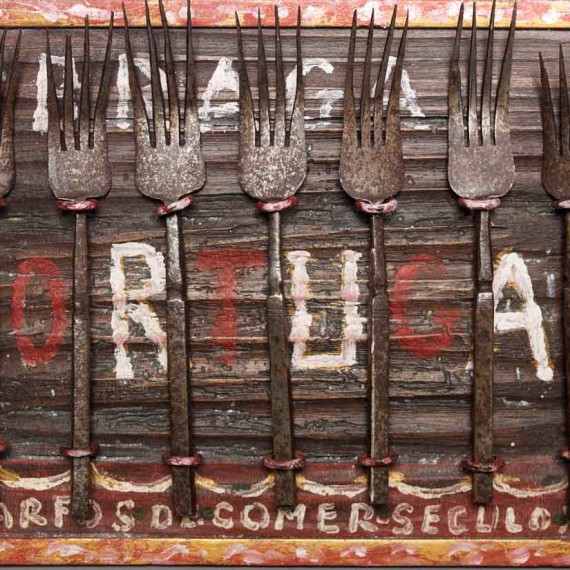 BRAGA
ORTUGA
ARFOS DE COMER-SECULO